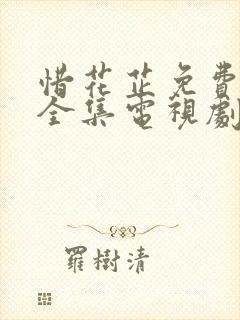 惜花芷免費
全集電視劇
羅樹清